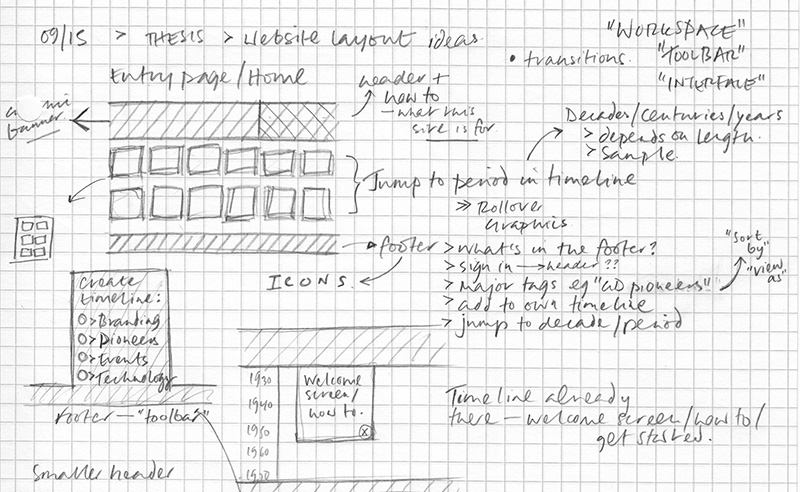 09/15 > THESIS > Website layout ideas.
"WORKSPACE"
• transitions. "TOOLBAR"
"INTERFACE"
Entry page/Home
header +
how to
— what this
site is for
banner
Decades/centuries/years
> depends on length.
> Sample.
Jump to period in timeline
>> Rollover
Graphics
footer
> What's in the footer?
> sign in → header ??
> Major tags eg "GD pioneers"
> add to own timeline
> jump to decade/period
"sort
by"
"view
as"
ICONS.
Create
timeline:
O > Branding
O > Pioneers
O > Events
O > Technology
footer — "toolbar"
Smaller header
1930
1940
1950
1960
Welcome
screen/
how to.
Timeline already
there — welcome screen/how to/
get started.